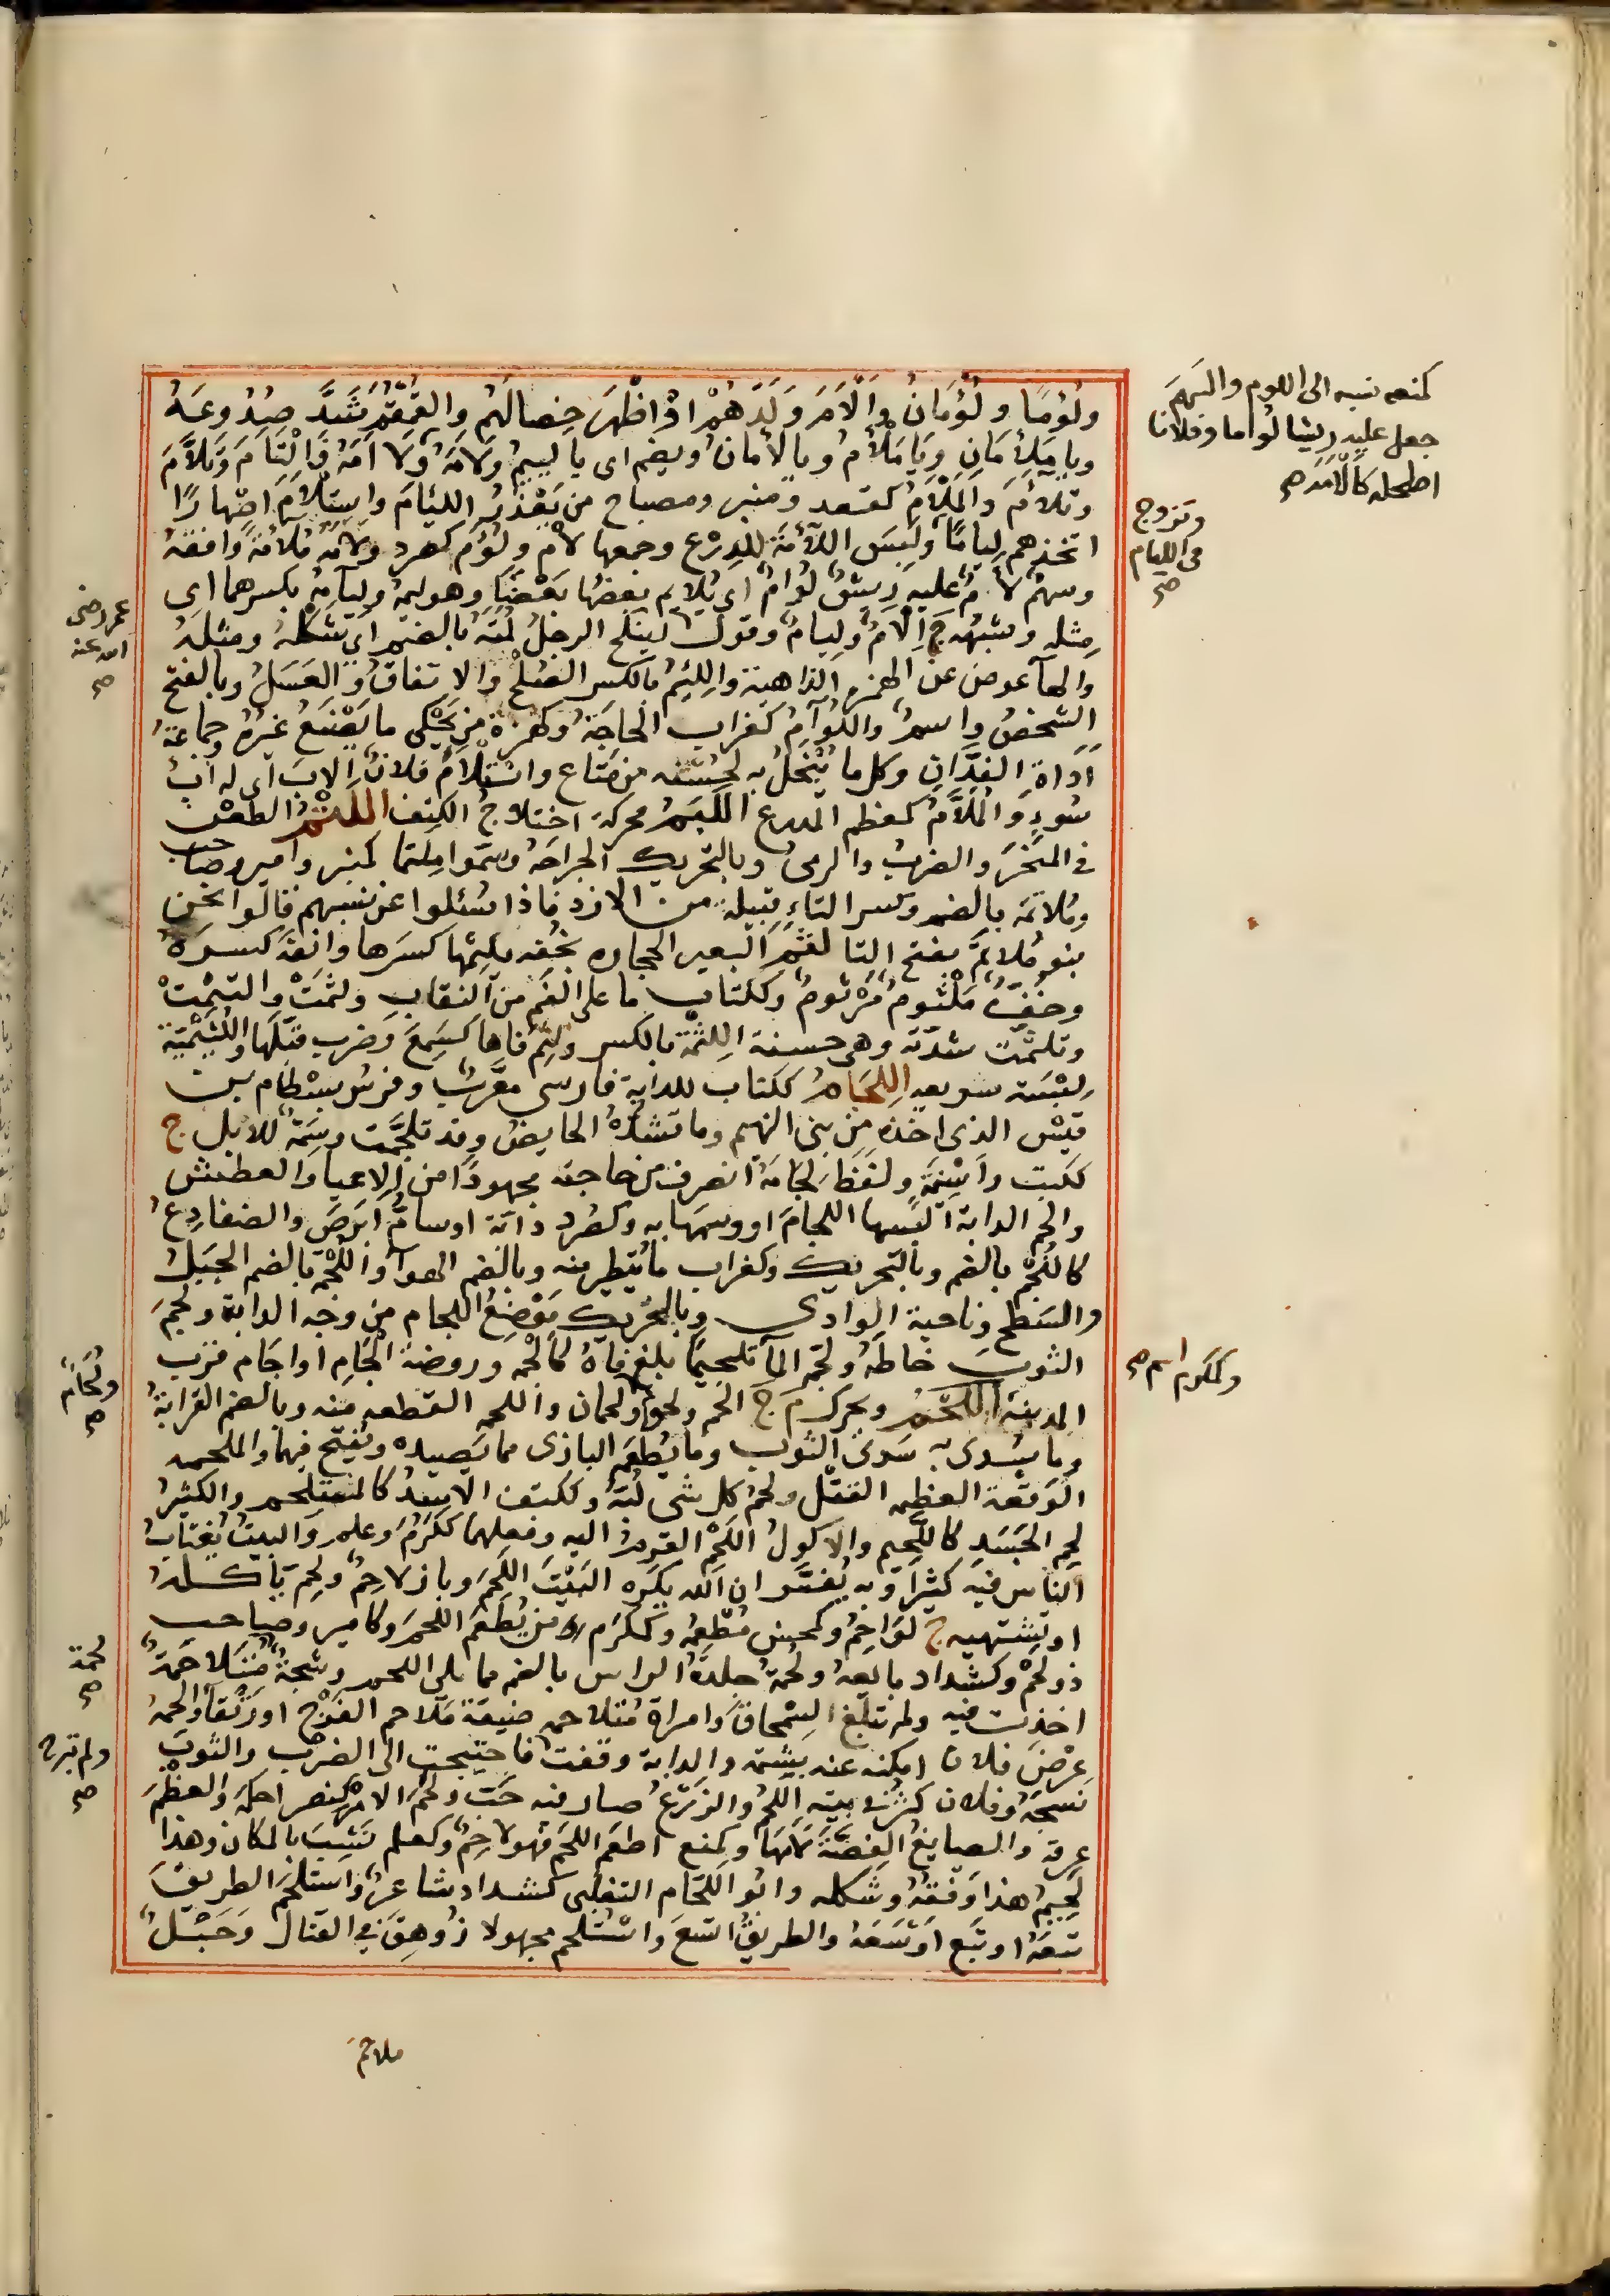 ولُؤمًا ولُؤْمَانٌ وَالْأَمَ وَلَدَهُمْ اوْ اظْهَرَ خِصَالَهُم والقُمْقُمَ شَدَّ صُدُوعَهُ
ويا مَلْأَمَانُ وَيَا مَلْأَمُ وبالأمانُ ويضم اى يا لييمُ ولَامَهُ ولَاءَمَهُ وَالْتَامَ وَتَلَأَّمَ
وتلاءَمَ والمَلْأَمُ كمقعد ومنبر ومصباح من يَعْذُرُ اللئِامَ واستَلْأَمَ اصْهارًا
اتخذهم لِيامًا ولبِسَ اللَّأْمَةَ للدِرْع وجمعها لَأْم ولُؤَم كصرد ولَاءَمَهُ مُلَاءَمَةً وافقهُ
وسهمٌ لَأْمٌ عليه رِيشٌ لُؤَامٌ اى يُلايم بعضها بَعْضًا وهو لِيمُه ولِيامُه بكسرهما اى
مِثله وشبهه ج اَلْآمٌ ولِيامٌ وقول لينكح الرجلُ لُمَتَهُ بالضم اى شكْلهُ ومثله
والهآ عوض عن الهمزه الذاهبة واللِّئمُ بالكسر الصُلْح والاتفاقُ والعَسَلُ وبالفتح
الشخصُ واسمٌ واللُؤَامُ كغراب الحاجَةُ وكهمزة من يَحْكى ما يَصْنَعُ غيرُهُ وجماعة
اَدَاةِ الفَدَّانِ وكل ما يُبْخَلُ به لحُسْنِه من متاع واسْتَلْأَمَ فلانٌ الابَ اى له ابُ
سُوءٍ والمُلَأَّمُ كمعظم المدرع اللَّتَم محركة اختلاج الكتف اللَّتْمُ الطعْن
فى المَنْحَر والضربُ والرمىُ وبالتحريك الجِراحَهُ وسَمَّوا مِلتَما كمنبر وامير وصاحب
ومُلاتِمَه بالضم وكسر التاءِ قبيلة من الازد فاذا سُئلوا عن نسبهم قالوا نحن
بنو مُلاتَمَ بفتح التا لَثَمَ البعير الحجاره بخُفِه يلثِمُها كسَرَها وانفَهُ كسرَهُ
وخُفٌّ مَلْثُومٌ مَرْثُومٌ وككتاب ما على الفَم من النِقابِ ولثَمَتْ والتَثَمَتْ
وتلثّمت شدّته وهى حسنة اللِثْمَة بالكسر ولَثِم فاها كسَمِعَ وضرب قبَّلَها
لِبْسَة سريعه اللِّجَامُ ككتاب للدابة فارسى معرَّبٌ وفرسُ بِسْطام بن
قيس الذى اخذه من بنى الهيم وما تشدُّهُ الحايضُ وقد تلجَّمت وسِمَةٌ للابل ج
ككتب وأسْنِمَةٍ ولفظ لِجَامَهُ انصرف من حاجته مجهودًا من الاعيا والعطش
والجم الدابة البسها اللجامَ او وسَمَها به وكصُرد دابّة او سامُّ ابرَصَ والضفادِع
كاللُّجْمِ بالضم وبالتحريك وكغراب ما يُتَطير منه وبالضم الهوآ واللُّجْمَة بالضم الجَبَلُ
والسَّطح وناحية الوادى وبالتحريك مَوْضِعُ اللجام من وجه الدابة ولَجَمَ
الثوبَ خاطَهُ ولجَّمه المآ تلجيمًا بلغ فاهُ كالْجمه وروضة الْجَامِ او اجَام قرب
المدينة اللَّحْمُ ويحرك م ج الحُم ولحوم ولحمان واللحمه القطعه منه وبالضم القرابةُ
وما سُدى به سَدَى الثوب وما يُطعَم البازى مما يَصيده ويُفتح فيهما والملحمه
الوَقْعة العظيمه القتل ولَحْم كل شى لُبُّهُ وككتف الاسدُ كالمستلحم والكثيرُ
لحم الجَسَدِ كاللَّحِيم والاكولُ اللَّحْمَ القرِمُ اليه وفعلهما ككَرُمَ وعلم والبيتُ يُغتابُ
الناس فيه كثيرًا وبه يُفسَّر ان الله يكره البَيْتَ اللَّحِمَ وبازٌ لاحِمٌ ولحِمٌ ياكله
او يشتهيه ج لوَاحِمُ وكمحسن مُطْعِمُه وكمكرَم من يُطعَم اللحمَ وكامير وصاحب
ذو لحمٌ وكشداد بايعهُ ولُحمَةُ جلدةُ الراس بالضم مما يلى اللحم وشجّةٌ مُتَلاحمةٌ
اخذت فيه ولم تبلُغ السِّمْحاقَ وامراة مُتلاحمه ضيقة مَلاحم الفَرْج او رَتْقآ والحمهُ
عِرْضَ فلان امكنه عنه يشتمه والدابة وقفت فاحتيجت الى الضرب والثوبَ
نسجَهُ وفلان كثر فى بيته اللحْمُ والزرعُ صار فيه حَبّ ولَحَمَ الامر كنصر احكَمَه والعظْمَ
عرقه والصايغُ الفِضَّةَ لَأَمَها وكمنع اطعم اللحم فهو لاحِمٌ وكعلم نَشِبَ بالمكان وهذا
لَحِيمُ هذا وَفقُهُ وشكله وابو اللحَّام التغلبى كشداد شاعرٌ واستلحَمَ الطريقَ
تبعَهُ او تَبِعَ اَوْسَعَهُ والطريقُ اتسَعَ واسْتُلحم مجهولا زُوهِقَ فى القتال وحَبْلٌ
ملاحَم
كمنعه نسبه الى اللوم والسَهمَ
جعل عليه رِيشا لُؤاما وفلانا
اصلحه كالأمَه صح
وتزوج
فى الليام
صح
عمر رضى
الله عنه
صح
وكمكرم اسم صح
ولُحَامٌ
صح
لحمة
صح
ولم تبرح
صح